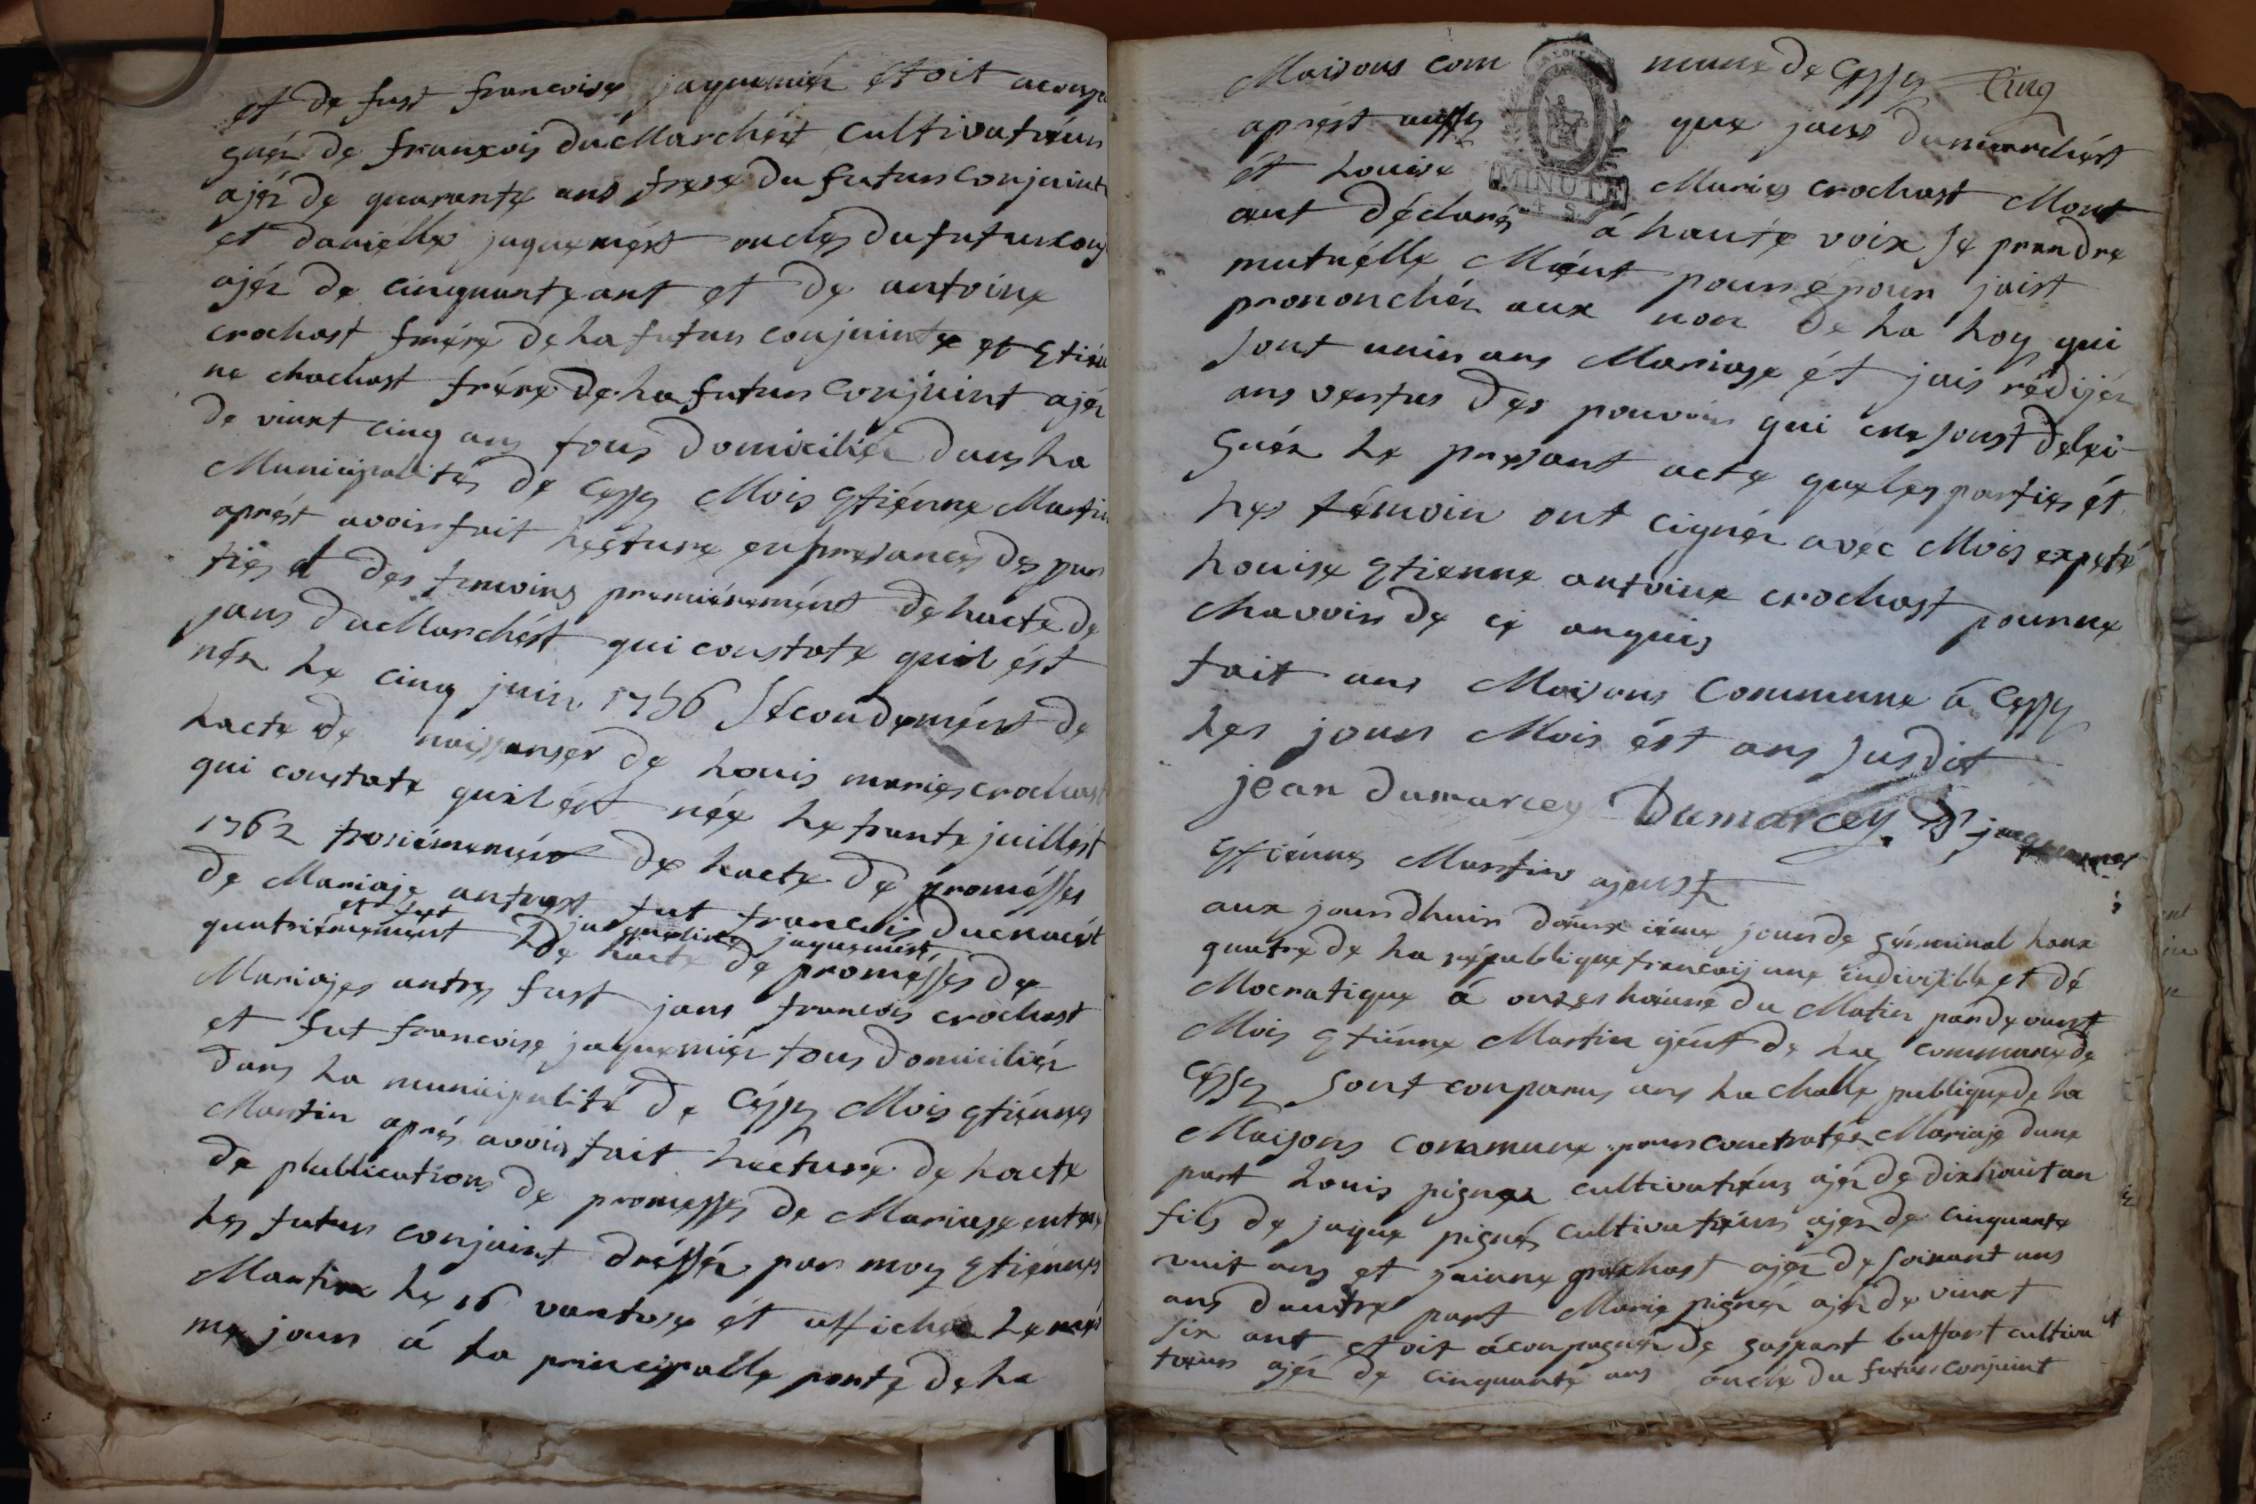 et de fust francoise jaquemiér étoit aconpa
gnér de francois duMarchést Cultivatieur
ajér de quarante ans frere du futur conjoint
et daniélle jaquemést oncles du futur conj
ajér de cinquante ant et de antoine
crochast frére de ha futur conjointe et étién
ne chochast frére de ha futur conjoint ajér
de vinxt cinq ans tous domiciliér dans ha
Municipalités de Cessy Mois étiénne Martin
aprést avoir fait hecture en presances des par
ties et des temoins premiérement de hacte de
jans duMarchést qui constate quil ést
nér he cinq juin 1756 Secondemént de
hacte de naissanser de houis maries crochast
qui constate quil ést née he trante juillést
1762 trosiémemént de hacte de promésses
de Mariaje antrest fut francois Ducmarést
et fust jaqueline jaquemést
quatriémemént De hacte de promésses de
Mariajes antres fust jans francois crochast
et fut francoise jaquemiér tous domiciliér
dans ha municipalité de Céssy Mois étiénnes
Martin aprés avoir fait hécture de hacte
de plublications de promesses de Mariaje entre
hes futur conjoint dréssér par moy étiénnes
Martin he 16 vantose ét affichée he mé
me jour á ha principalle porte de ha
Maisons com mune de Cessy Cinq
aprést aussy que jans dumarchést
et houise Maries crochast Mont
ant déclarés á haute voix Se prendre
mutuélle Mént pour épour jaist
prononchér aux non de ha hoy qui
sont unir ans Mariage ét jais rédijér
ans vertus des pouvoir qui me sonst deleí
guér he presant acte que les parties ét
hes témoin ont cignér avéc Mois expeté
houise étienne antoine crochast pour ne
chavoir de ce anquis
fait ans Maisons Commune á Cessy
hes jour Mois ést ans Susdit
jean dumarcey Dumarcey. D jaquemet
étiénnes Martin ajenst
aux jourdhuir douxe iéme jour de gérminal hans
quatre de ha république francaij une indivisible et dé
Mocratique á onzes heuure du Matin pardevanst
Mois étiénne Martin ajént de has commune de
Cessy Sont conparus ans ha challe publique de ha
Maisons Commune pour contratér Mariaje dune
part houis pignér cultivatieur ajér de dixhuit an
fils de jaque pignér cultivatieur ajér de cinquante
vuit ans et crochast ajér de soixant ans
ans dautre part Marie pignér ajér de vinxt
six ant étoit áconpagnér de gaspart buffart cultiva
teiur ajér de cinquante ans oncle du futur conjoint
MINUTE